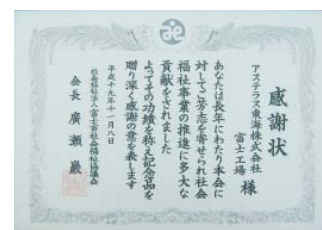 感謝状
アステラス東海株式会社
富士工場 様
あなたは長年にわたり本会に
対してご芳志を寄せられ社会
福祉事業の推進に多大な
貢献をされました
よってその功績を称え記念品を
贈り深く感謝の意を表します
平成十九年十一月八日
社会福祉法人富士市社会福祉協議会
会長 廣瀬 巌